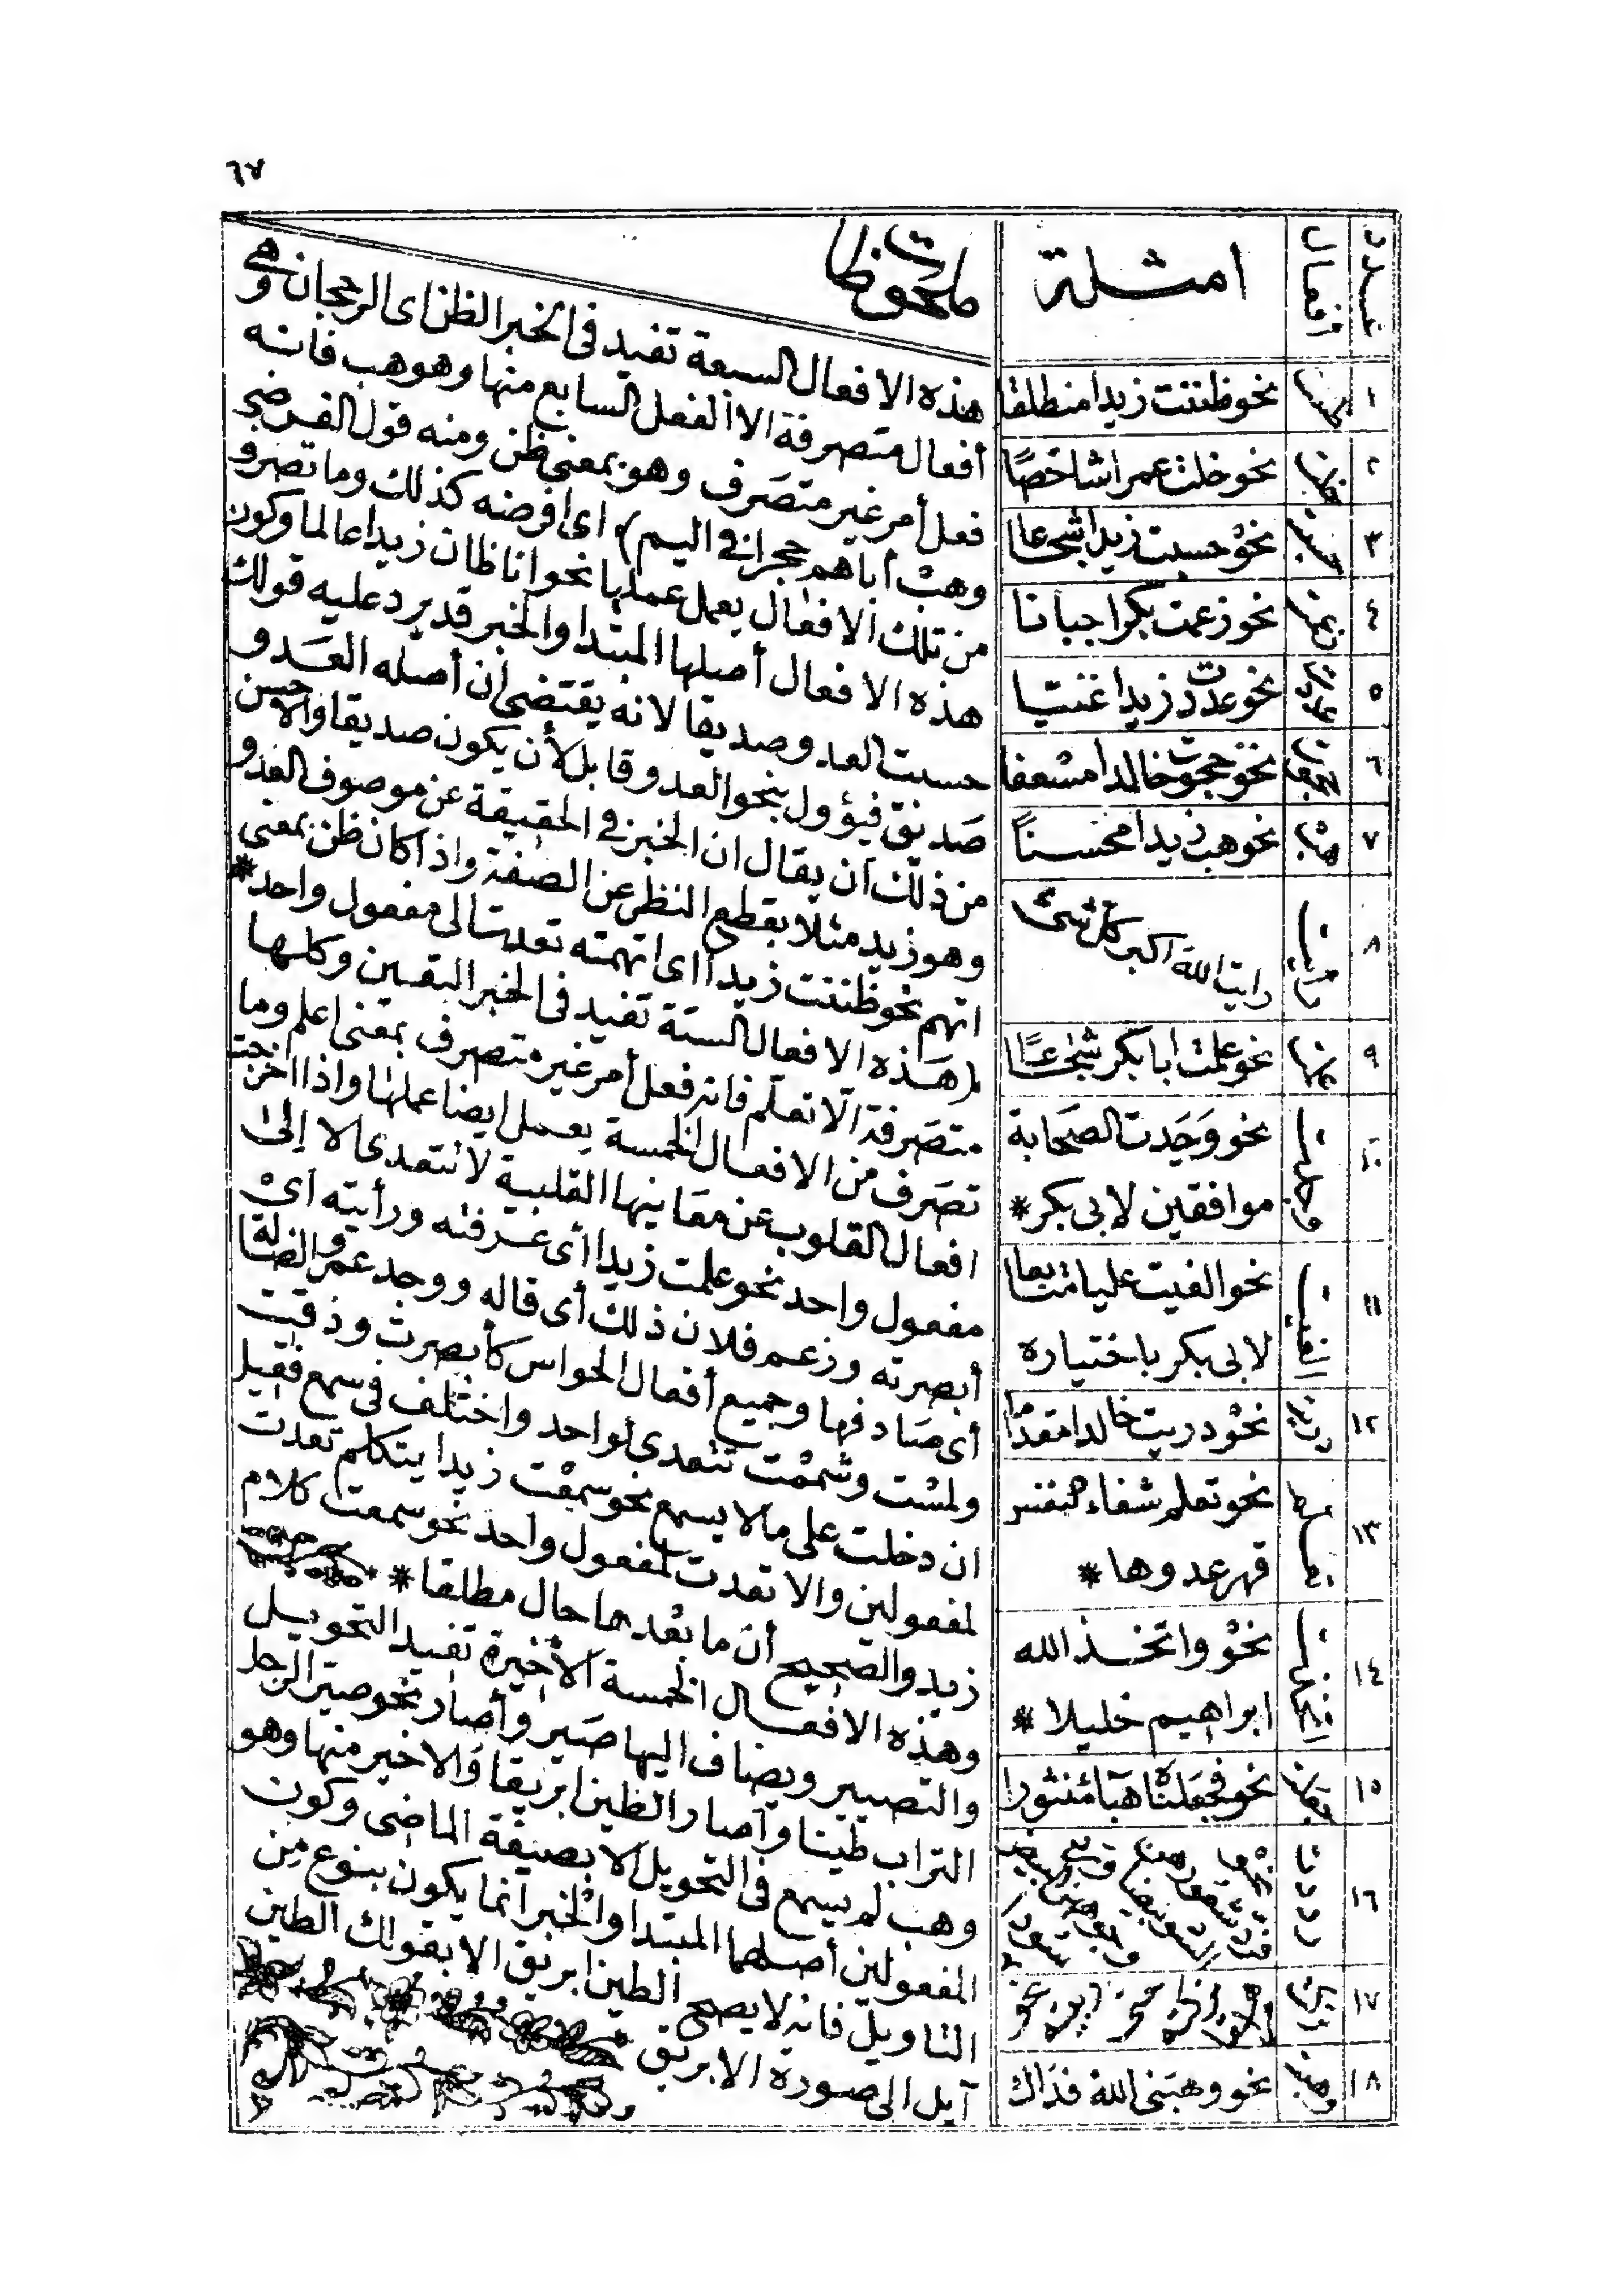 ٦٧
عدد
أفعال
امثلة
ملحوظات
١ ظننت نحو ظننت زيدا منطلقا
٢ خلت نحو خلت عمرا شاخصًا
٣ حسبت نحو حسبت زيدا شجاعا
٤ زعمت نحو زعمت بكرا جبانا
٥ عددت نحو عددت زيدا غنيا
٦ نحو حجوت خالدا
٧ هب نحو هب زيدا محسنًا
٨ رأيت رايت الله اكبر كل شئ
٩ علمت نحو علمت ابا بكر شجاعًا
١٠ وجدت نحو وَجَدت الصحَابة
موافقين لابى بكر *
١١ الفيت نحو الفيت عليا متابعا
لابى بكر باختياره
١٢ دريت نحو دريت خالدا مقداما
١٣ تعلم نحو تعلم شفاء النفس
قهر عدوها *
١٤ اتخذت نحو واتخذ الله
ابراهيم خليلا *
١٥ جعلت نحو فجعلناه هبآء منثورا
١٦ رددنا
١٧ نحو
١٨ وهبت نحو وهبنى الله فداك
هذه الافعال السبعة تفيد فى الخبر الظن اى الرجحان وهى
أفعال متصرفة الا الفعل السابع منها وهو هب فانه
فعل أمر غير متصَرف وهو بمعنى ظن ومنه قول الفرضى
وهبْ أباهم حجرا فى اليم) اى افرضه كذلك وما تصرف
من تلك الافعال يعمل عملها نحو انا ظان زيدا عالما وكون
هذه الافعال أصلها المبتدا والخبر قد يرد عليه قولك
حسبت العدو صديقا لانه يقتضى ان أصله العَدو
صَديق فيؤول بنحو العدو قابل لأن يكون صديقا والاحسن
من ذلك ان يقال ان الخبر فى الحقيقة عن موصوف العدو
وهو زيد مثلا بقطع النظر عن الصفة واذا كان ظن بمعنى
اتهم نحو ظننت زيدا اى اتهمته تعدت الى مفعول واحد *
(هَذه الافعال الستة تفيد فى الخبر اليقين وكلها
متصَرفة الّا تعلّم فانه فعل أمر غير متصرف بمعنى اعلم وما
تصَرف من الافعال الخمسة يعمل ايضا عملها واذا اخرجت
افعال القلوب عن مَعَانيها القلبية لا تتعدى الا إلى
مفعول واحد نحو علمت زيدا أى عرفته ورأيته اىْ
أبصرته وزعم فلان ذلك أى قاله ووجد عمرو الضالة
أى صَادفها وجميع أفعال الحواس كأبصرت وذقت
ولمسْت وشممْت تتعدى لواحد واختلف فى سمع فقيل
ان دخلت على مالا يسمع نحو سمعْت زيدا يتكلم تعدت
لمفعولين والا تعدت لمفعول واحد نحو سمعت كلام
زيد والصحيح أن ما بعْدهما حال مطلقا *
وهذه الافعال الخمسة الأخيرة تفيد التحويل
والتصيير ويضاف اليها صَير وأصار نحو صيّر الرجل
التراب طينا وآصار الطين ابريقا وَالاخير منها وهو
وهب لم يسمع فى التحويل الا بصيغة الماضى وكون
المفعولين أصلهما المبتدا والخبر انما يكون بنوع من
التاويل فانه لا يصح الطين ابريق الا بقولك الطين
آيل الى صورة الابريق *